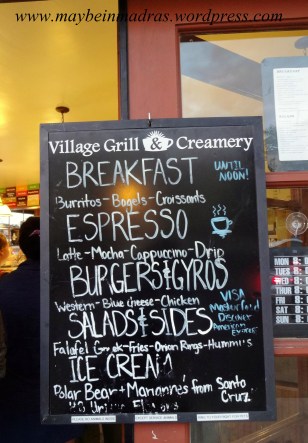 www.maybeinmadras.wordpress.com
Village Grill & Creamery
BREAKFAST
UNTIL
NOON!
Burritos-Bagels-Croissants
ESPRESSO
Latte-Mocha-Cappuccino-Drip
BURGERS & GYROS
Western-Blue Cheese-Chicken
VISA
MasterCard
Discover
American
Express
SALADS & SIDES
Falafel Greek-Fries-Onion Rings-Hummus
ICE CREAM
Polar Bear + Marianne's from Santa
Cruz
MON
TUES
WED
THU
FRI
SAT
SUN